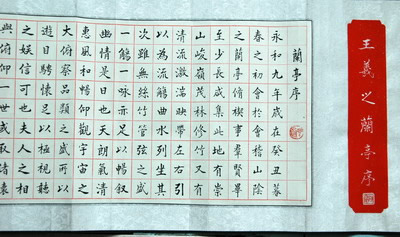 王羲之蘭亭序
蘭亭序
永和九年歲在癸丑暮
春之初會於會稽山陰
之蘭亭脩禊事群賢畢
至少長咸集此地有崇
山峻嶺茂林修竹又有
清流激湍映帶左右引
以為流觴曲水列坐其
次雖無絲竹管弦之盛
一觴一詠亦足以暢叙
幽情是日也天朗氣清
惠風和暢仰觀宇宙之
大俯察品類之盛所以
遊目騁懷足以極視聽
之娛信可也夫人之相
與俯仰一世或取諸懷